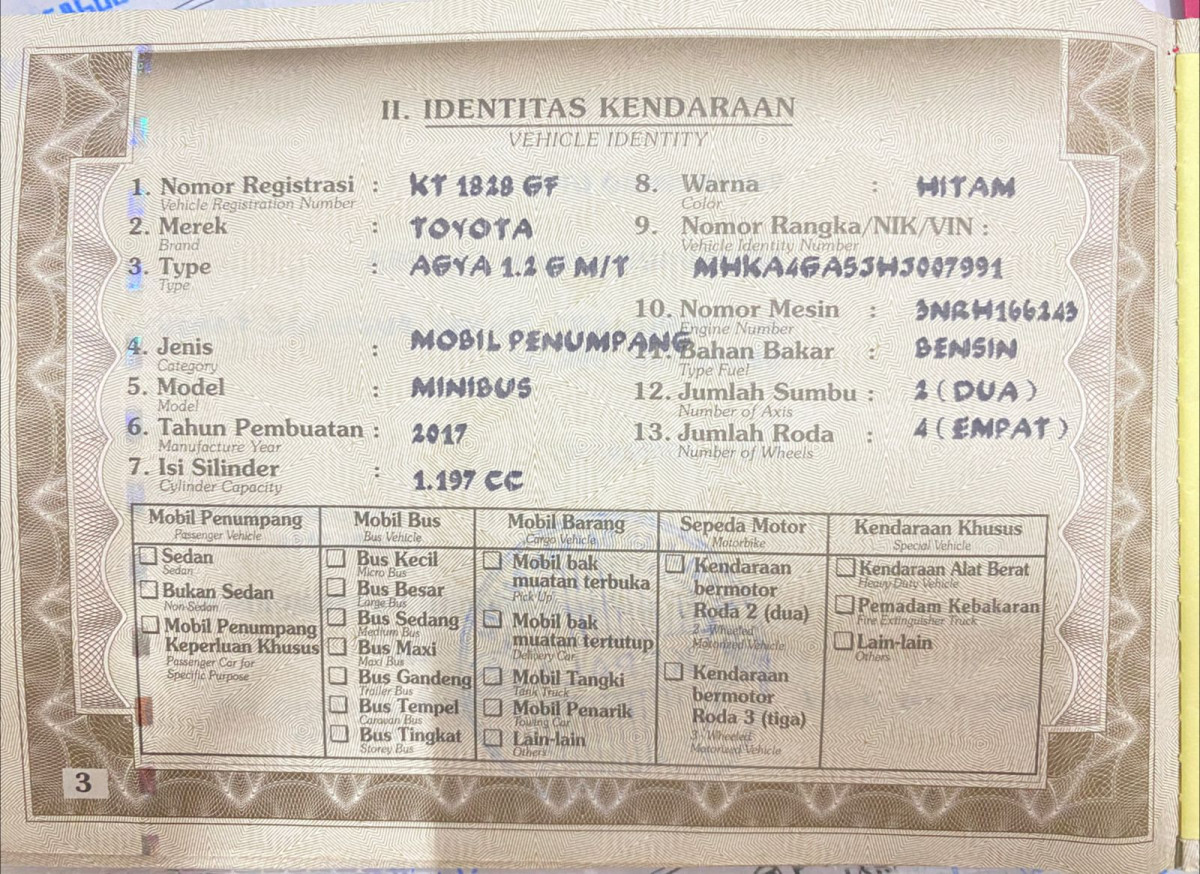 II. IDENTITAS KENDARAAN
VEHICLE IDENTITY
1. Nomor Registrasi : KT 1828 GF
Vehicle Registration Number
2. Merek : TOYOTA
Brand
3. Type : AGYA 1.2 G M/T
Type
4. Jenis : MOBIL PENUMPANG
Category
5. Model : MINIBUS
Model
6. Tahun Pembuatan : 2017
Manufacture Year
7. Isi Silinder : 1.197 CC
Cylinder Capacity
8. Warna : HITAM
Color
9. Nomor Rangka/NIK/VIN :
Vehicle Identity Number
MHKA4GA5JHJ007991
10. Nomor Mesin : 3NRH166243
Engine Number
11. Bahan Bakar : BENSIN
Type Fuel
12. Jumlah Sumbu : 2 (DUA)
Number of Axis
13. Jumlah Roda : 4 (EMPAT)
Number of Wheels
Mobil Penumpang
Passenger Vehicle
Sedan
Sedan
Bukan Sedan
Non-Sedan
Mobil Penumpang
Keperluan Khusus
Passenger Car for
Specific Purpose
Mobil Bus
Bus Vehicle
Bus Kecil
Micro Bus
Bus Besar
Large Bus
Bus Sedang
Medium Bus
Bus Maxi
Maxi Bus
Bus Gandeng
Trailer Bus
Bus Tempel
Caravan Bus
Bus Tingkat
Storey Bus
Mobil Barang
Cargo Vehicle
Mobil bak
muatan terbuka
Pick Up
Mobil bak
muatan tertutup
Delivery Car
Mobil Tangki
Tank Truck
Mobil Penarik
Towing Car
Lain-lain
Others
Sepeda Motor
Motorbike
Kendaraan
bermotor
Roda 2 (dua)
2 - Wheeled
Motorized Vehicle
Kendaraan
bermotor
Roda 3 (tiga)
3 - Wheeled
Motorized Vehicle
Kendaraan Khusus
Special Vehicle
Kendaraan Alat Berat
Heavy Duty Vehicle
Pemadam Kebakaran
Fire Extinguisher Truck
Lain-lain
Others
3